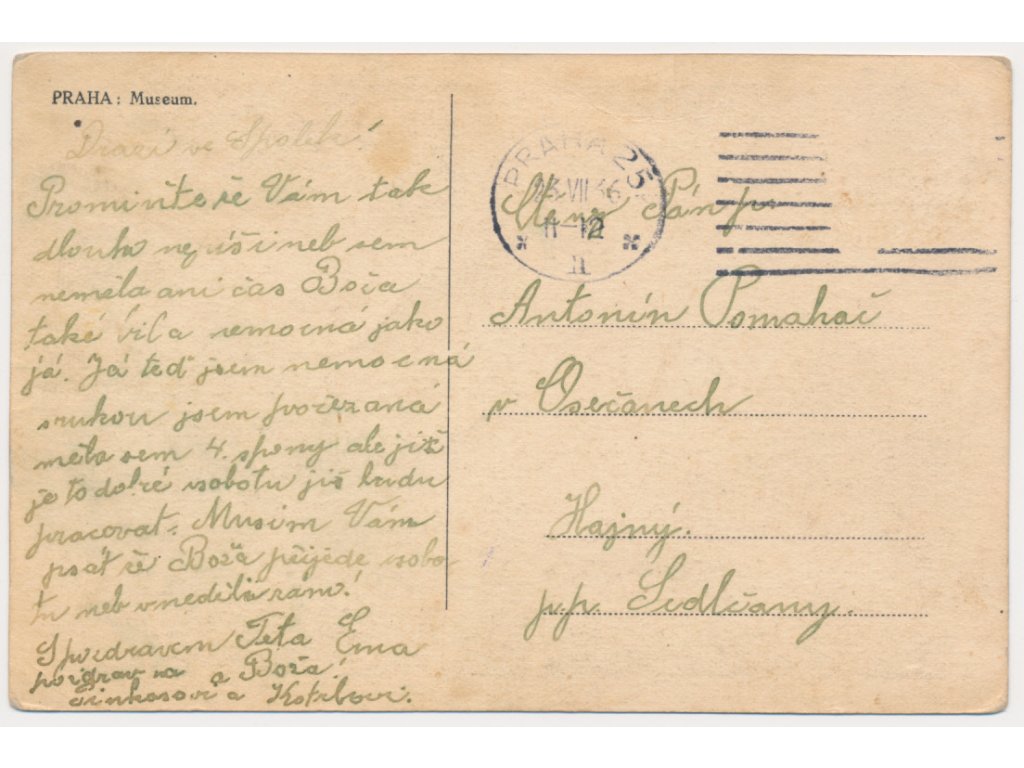 PRAHA: Museum.
Drazí ve Spolek!
Promiňte že Vám tak
dlouho nepíši neb sem
neměla ani čas Boža
také bila nemocná jako
já. Já teď jsem nemocná
s rukou jsem pořezaná
měla sem 4. spony ale již
je to dobré v sobotu již budu
pracovat. Musím Vám
psát že Boža přijede v sobo
tu neb v neděli ranní!
S pozdravem Teta Ema
a Boža!
pozdrav na
Kotrbovi.
PRAHA 25
23.VII 36
11-12
Pán p.
Antonín Pomahač
v Osečanech
Hajný.
p.p. Sedlčany.